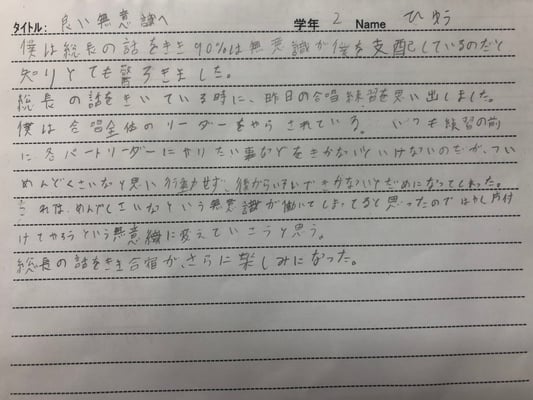 タイトル: 良い無意識へ 学年 2 Name ひゅう
僕は総長の話をきき90%は無意識が僕を支配しているのだと
知りとても驚ろきました。
総長の話をきいている時に、昨日の合唱練習を思い出しました。
僕は合唱全体のリーダーをやらされています。いつも練習の前
に各パートリーダーにやりたい事などをきかないといけないのだが、つい
めんどくさいなと思い行動せず、後からいそいできかないとだめになってしまった。
これは、めんどくさいなという無意識が働いてしまってると思ったのではやく片付
けてやろうという無意識に変えていこうと思う。
総長の話をきき合宿が、さらに楽しみになった。